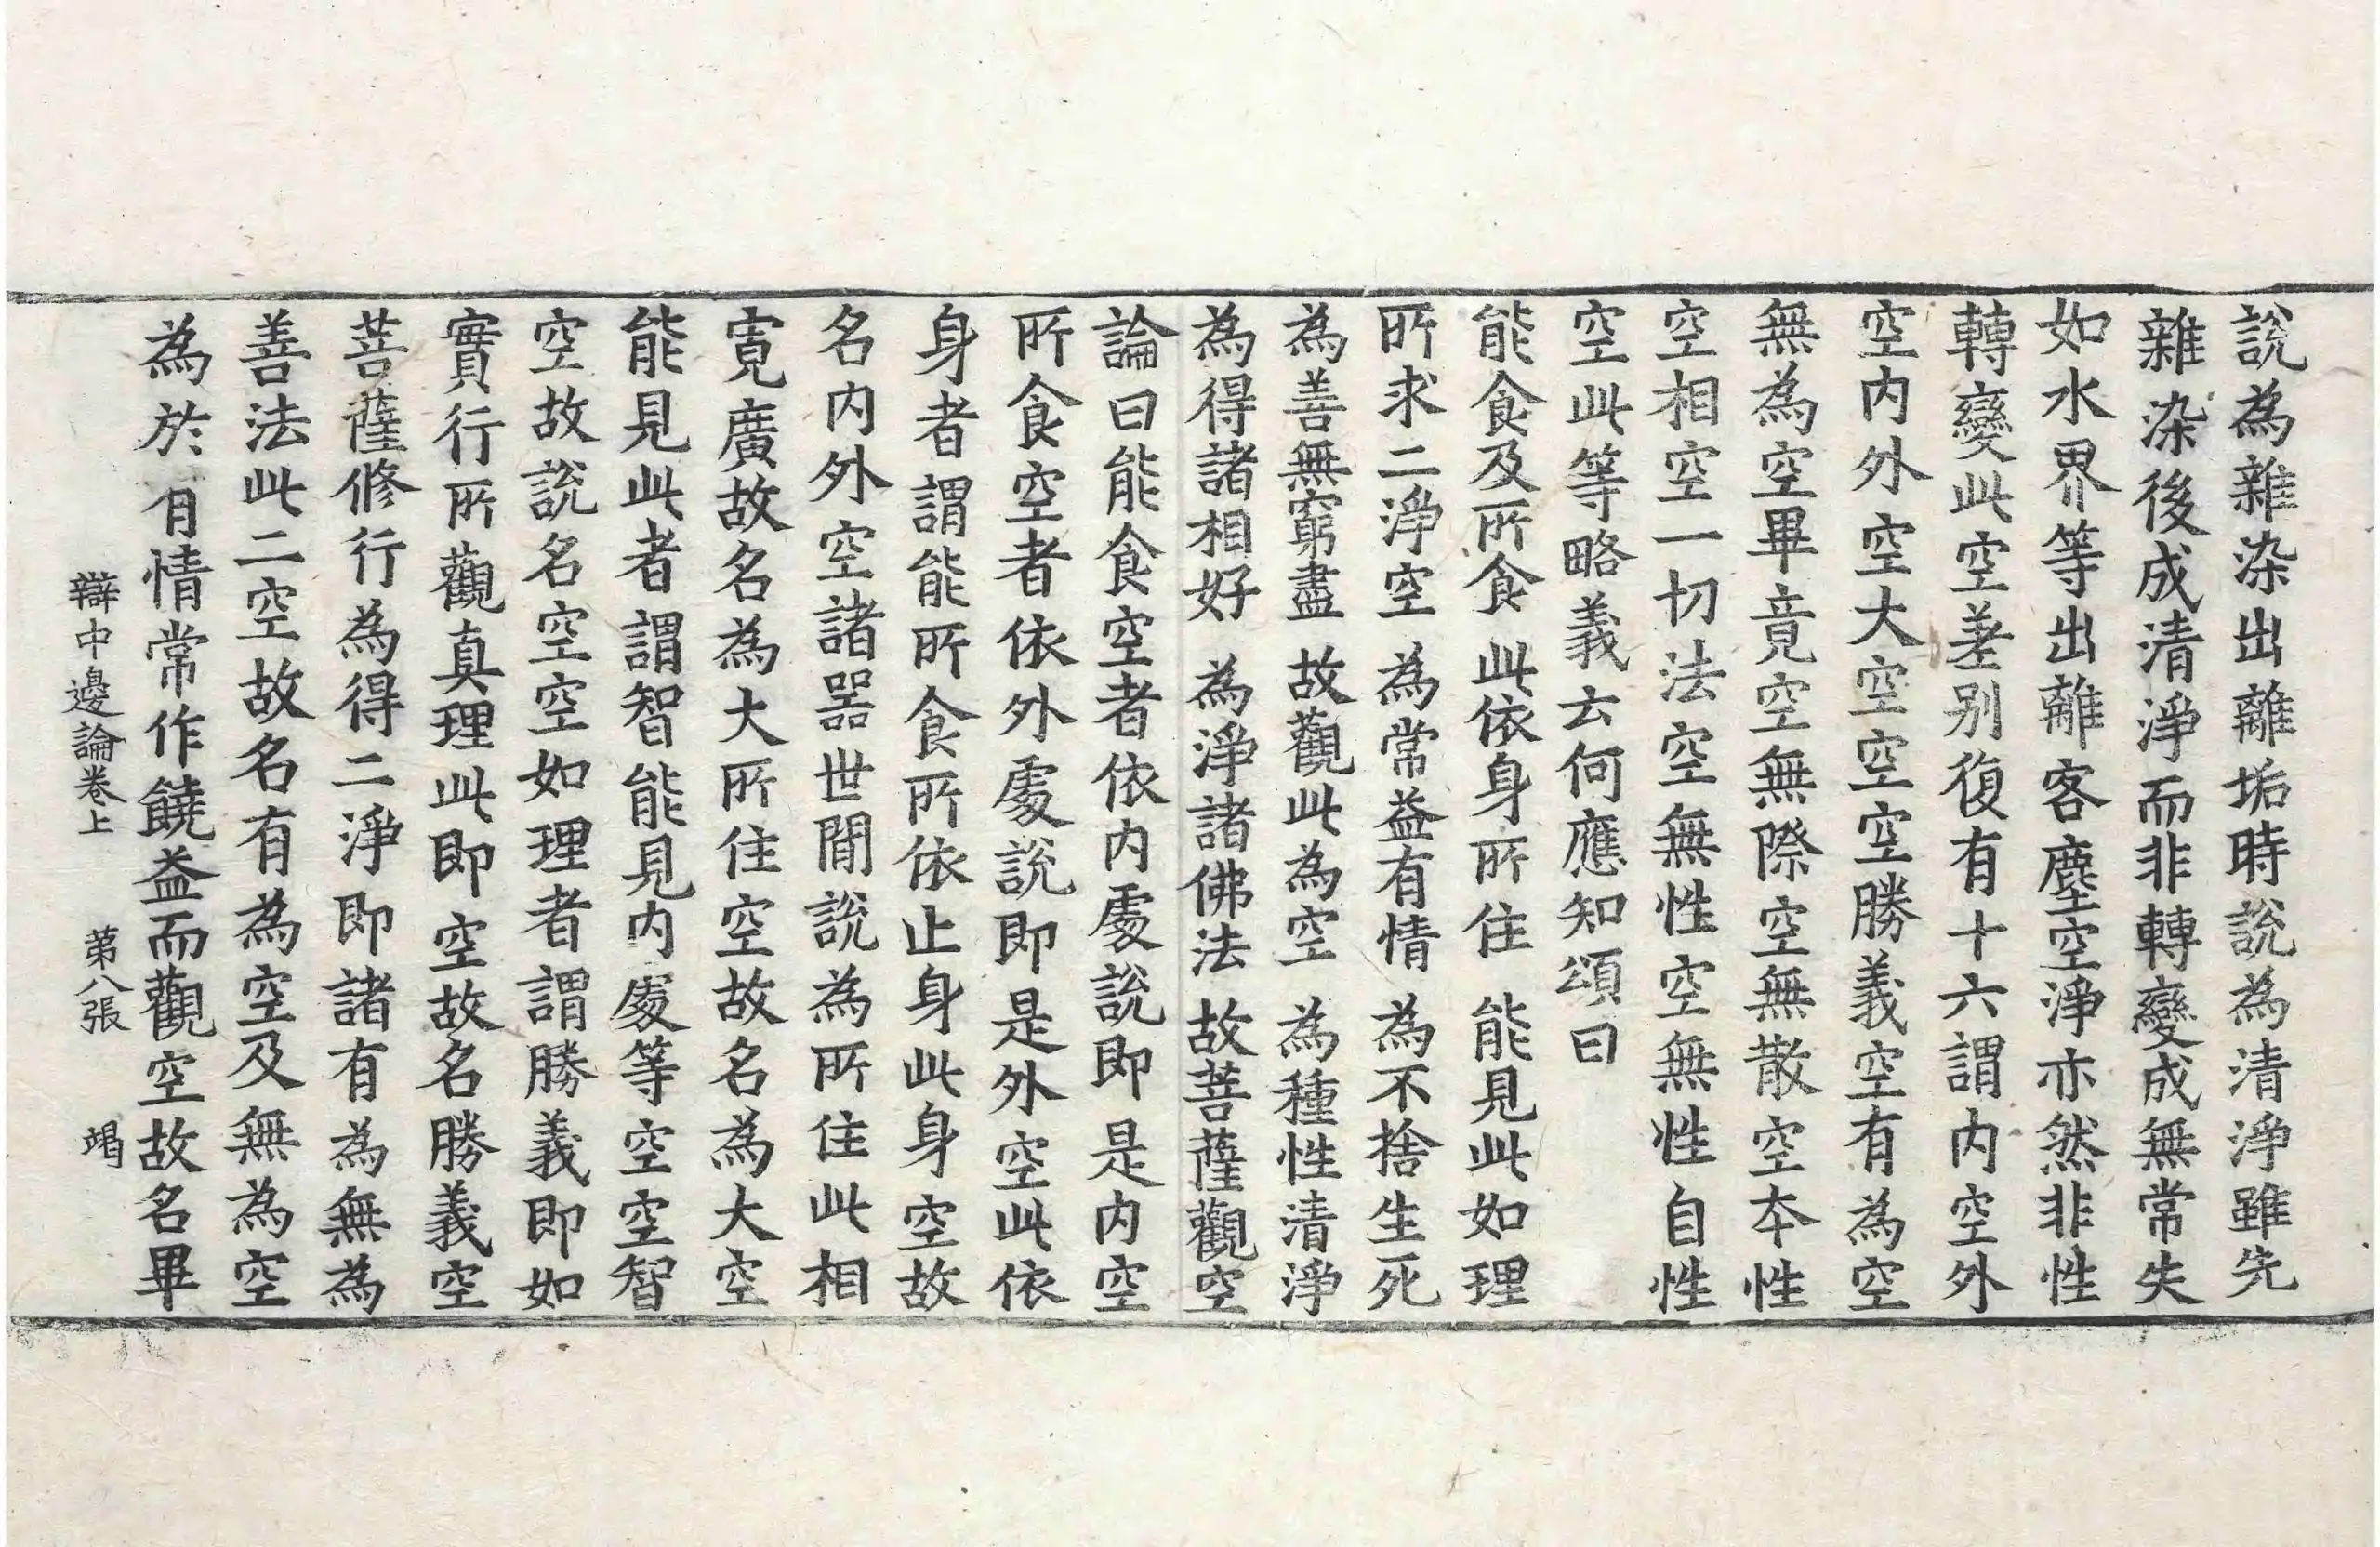 說為雜染出離垢時說為清淨雖先
雜染後成清淨而非轉變成無常失
如水界等出離客塵空淨亦然非性
轉變此空差别復有十六謂内空外
空内外空大空空空勝義空有為空
無為空畢竟空無際空無散空本性
空相空一切法空無性空無性自性
空此等略義云何應知頌曰
能食及所食 此依身所住 能見此如理
所求二淨空 為常益有情 為不捨生死
為善無窮盡 故觀此為空 為種性清淨
為得諸相好 為淨諸佛法 故菩薩觀空
論曰能食空者依内處說即是内空
所食空者依外處說即是外空此依
身者謂能所食所依止身此身空故
名内外空諸器世間說為所住此相
寬廣故名為大所住空故名為大空
能見此者謂智能見内處等空空智
空故說名空空如理者謂勝義即如
實行所觀真理此即空故名勝義空
菩薩修行為得二淨即諸有為無為
善法此二空故名有為空及無為空
為於有情常作饒益而觀空故名畢
辯中邊論卷上 第八張 竭